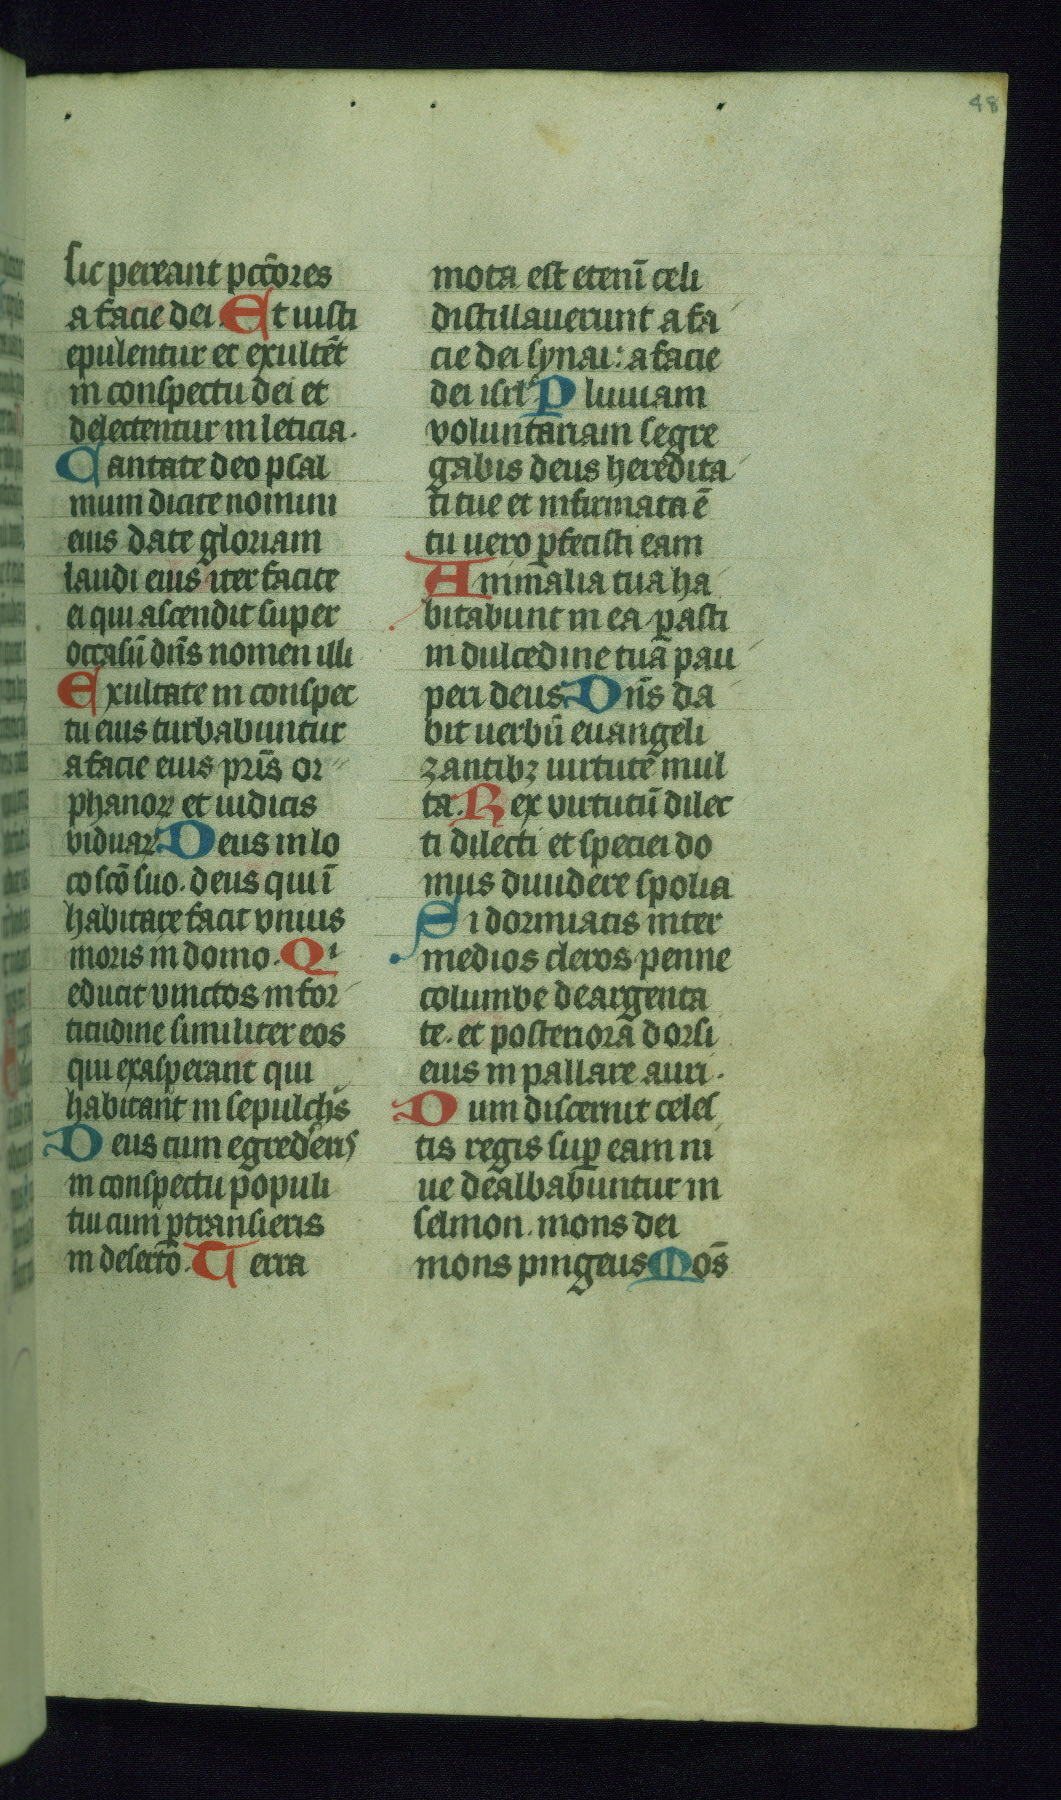 48
sic pereant pctōres
a facie dei. Et iusti
epulentur et exultēt
in conspectu dei et
delectentur in leticia.
Cantate deo psal
mum dicite nomini
eius date gloriam
laudi eius iter facite
ei qui ascendit super
occasū dn̄s nomen illi
Exultate in conspec
tu eius turbabuntur
a facie eius pr̄is or
phanoꝝ et iudicis
viduaꝝ Deus in lo
co scō suo. deus qui ī
habitare facit vnius
moris in domo. Qi
educit vinctos in for
titudine similiter eos
qui exasperant qui
habitant in sepulchꝭ
Deus cum egredʼeris
in conspectu populi
tui cum ꝑtransieris
in deserto. Terra
mota est etenī celi
distillauerunt a fa
cie dei synai: a facie
dei isrl Pluuiam
voluntariam segre
gabis deus heredita
ti tue et infirmata ē
tu uero ꝑfecisti eam
Animalia tua ha
bitabunt in ea pasti
in dulcedine tuā pau
peri deus. Dn̄s da
bit uerbū euangeli
zantibꝫ uirtutē mul
ta. Rex virtutū dilec
ti dilecti et speciei do
mus diuidere spolia
Si dormiatis inter
medios cleros penne
columbe deargenta
te. et posteriora dorsi
eius in pallare auri.
Dum discernit celes
tis regis suꝑ eam ni
ue dealbabuntur in
selmon. mons dei
mons pingeus Mōs